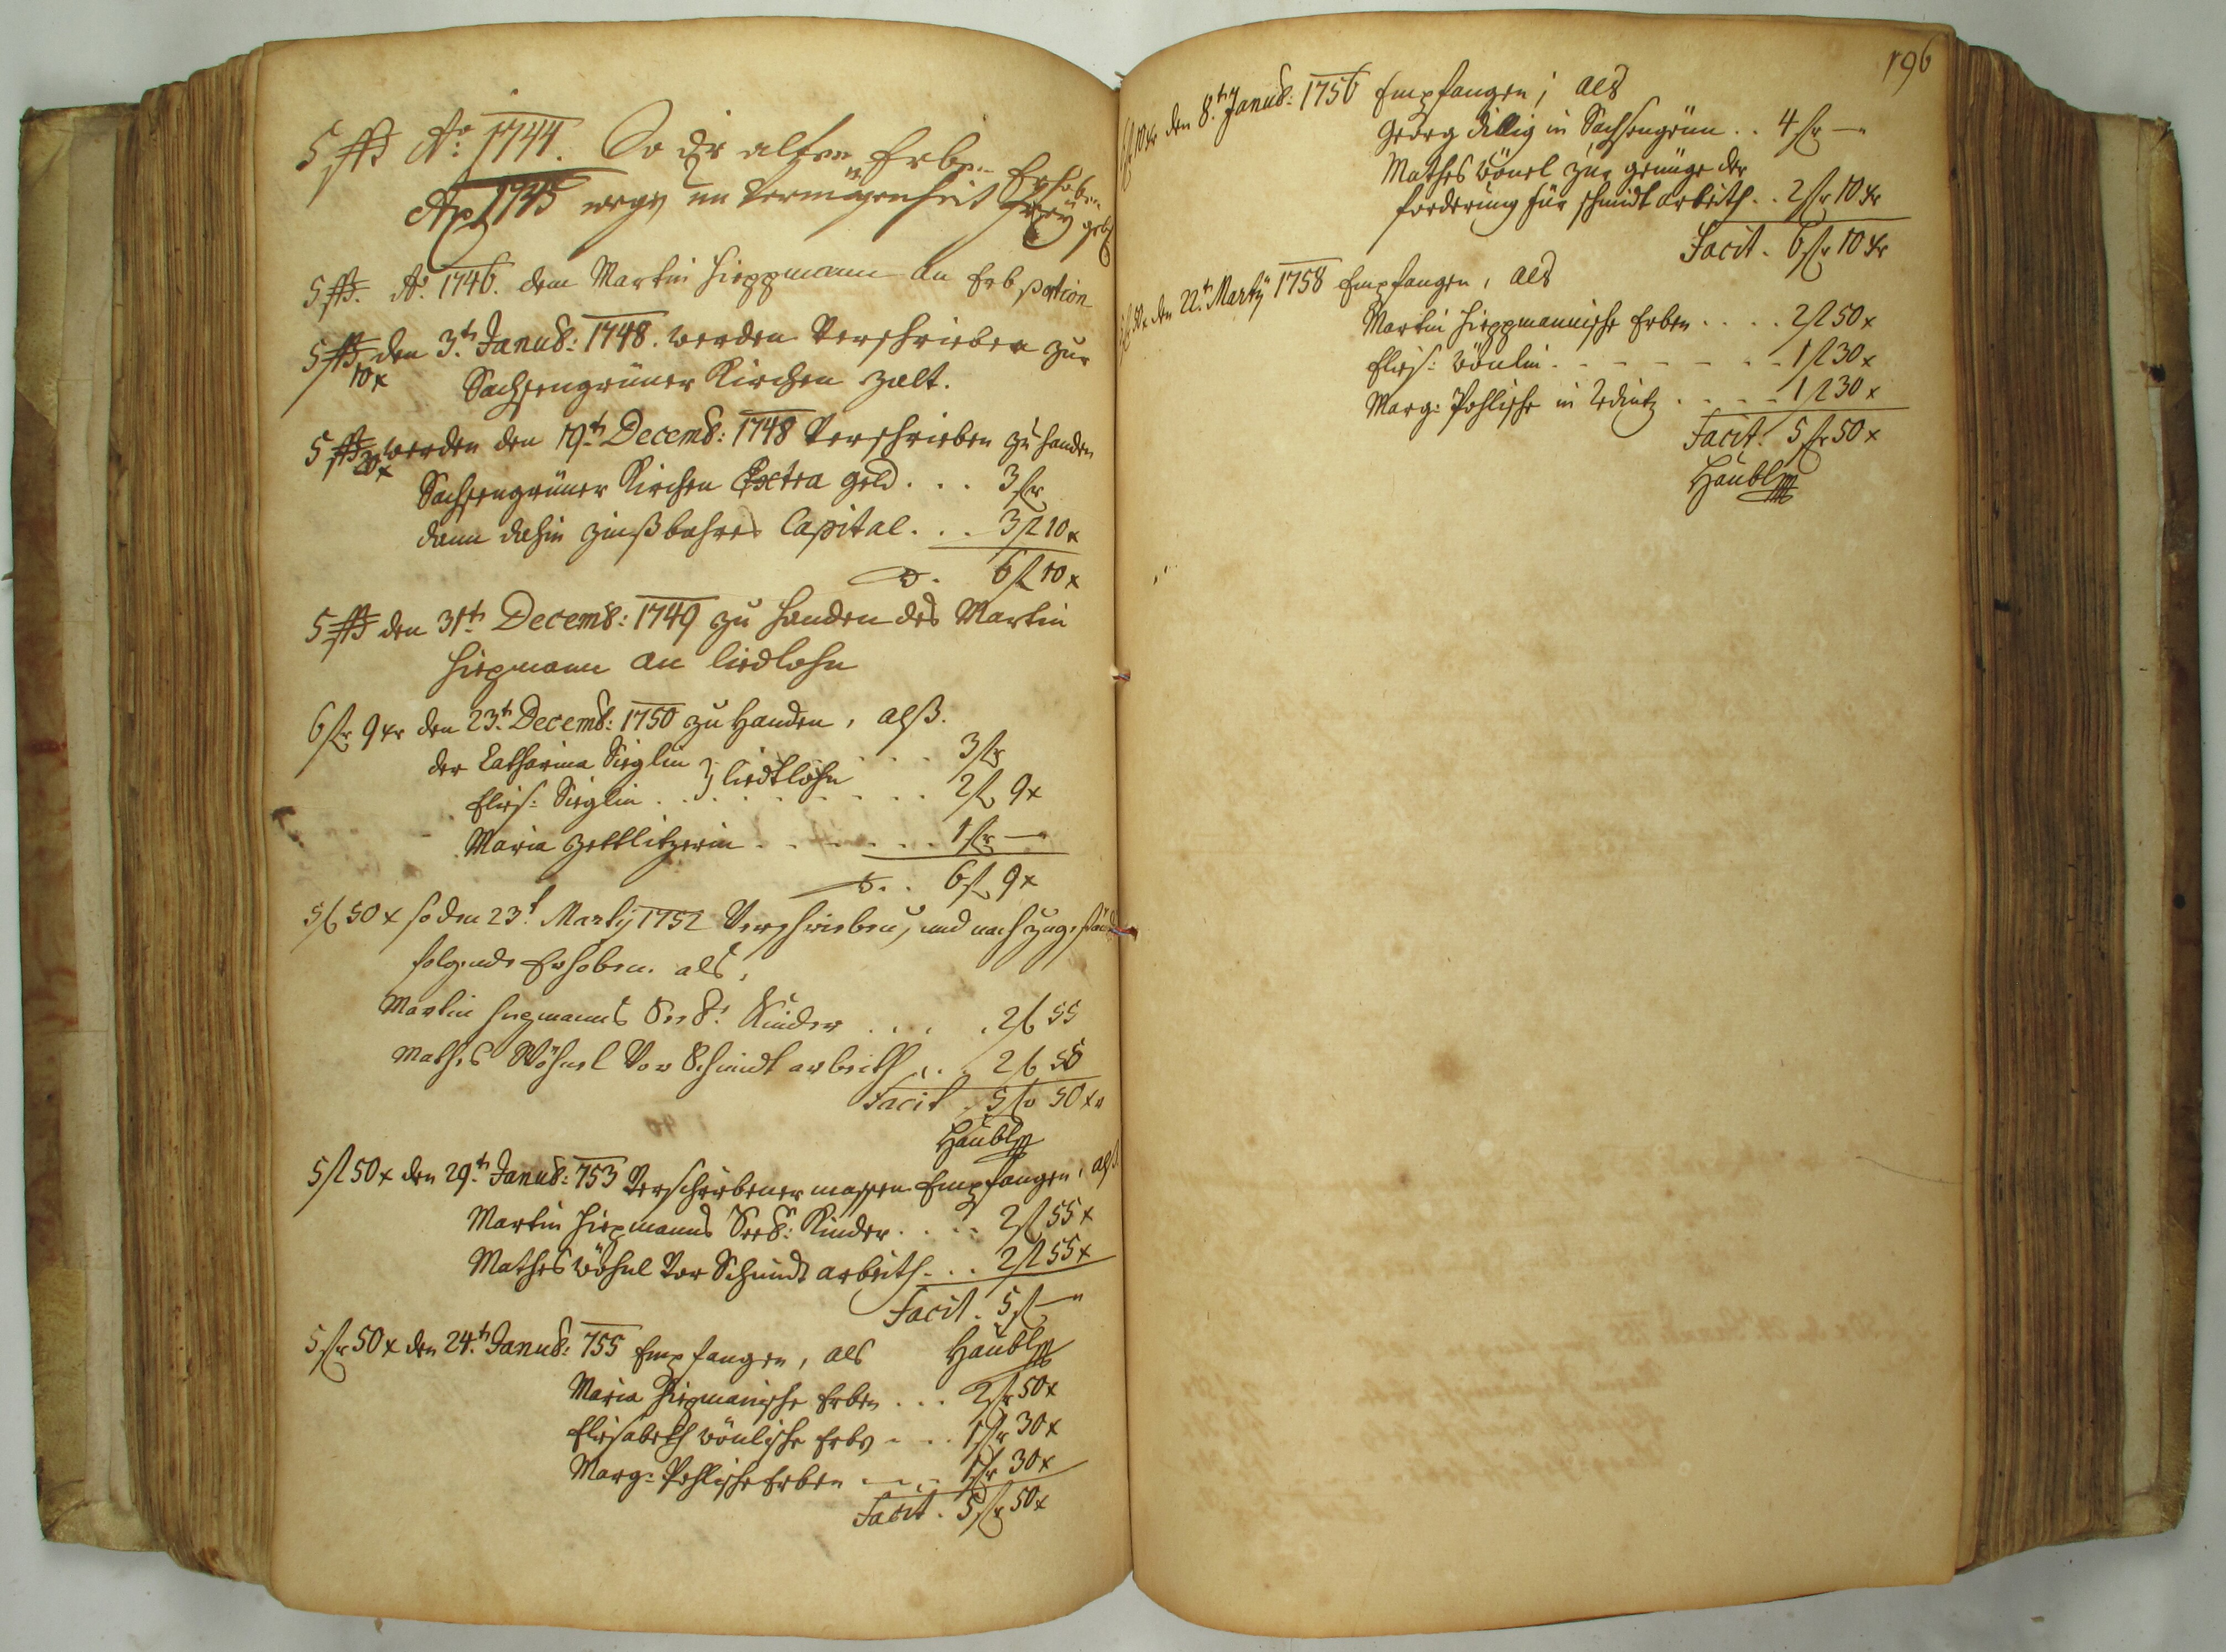 5 fl Ao: 1744. So die alten Erben Erhoben
Ao 1745 wegen un Vermögenheit frey geb
5 fl. Ao. 1746. dem Martin Hieppmann an Erb portion
5 fl den 3.t Janu8: 1748. werden Verschrieben zur
10 x Sachsengrüner Kirchen zalt.
5 fl werden den 19.t Decemb: 1748 Verschrieben zu handen
20 x
Sachsengrüner Kirchen Extra geld . . . 3 fl
dann dahin zinßbahres Capital . . . 3 fl 10 x
6 fl 10 x
5 fl den 31t Decemb: 1749 zu handen des Martin
Hiepmann an liedlohn
6 fl 9 xr den 23.t Decemb: 1750 zu Handen, alß.
der Catharina Sieglin . . . . 3 fl
liedtlohn
Elis: Sieglin . . . . . . . . 2 fl 9 x
Maria Zettlitzerin . . . . . . . 1 fl —
6 fl 9 x
5 f 50 x so den 23t Martÿ 1752 Verschrieben, und nach
folgende Erhoben. als,
Martin Hiepmanns Seel: Kinder . . . . 2 f 55
Mathes Wöhnel Vor Schmidt arbeith . . . 2 f 55
Facit . 5 fl 50 xr
Häubl
5 fl 50 x den 29.t Janu8: 753 Verschriebener massen Empfangen, alß
Martin Hiepmanns Seel: Kinder . . . . 2 fl 55 x
Mathes Wöhnl Vor Schmidt arbeith . . . 2 fl 55 x
Facit . 5 fl —
Häubl
5 fl 50 x den 24.t Janu8: 755 Empfangen, als
Maria Hiepmanische Erben . . . 2 fl 50 x
Elisabeth Wönlische Erbn . . . 1 fl 30 x
Marg: Pohlische Erben . . . 1 fl 30 x
Facit . 5 fl 50 x
196
10 xr den 8.t Janu8: 1756 Empfangen; als
Georg Dillig in Sachsengrün . . 4 fl —
Mathes Wönel zur genüge der
forderung für schmidt arbeith . . 2 fl 10 xr
Facit . 6 fl 10 xr
50 x den 22.t Martÿ 1758 Empfangen, als
Martin Hieppmannische Erben . . . . 2 fl 50 x
Elis: Wönlin . . . . . . . 1 fl 30 x
Marg: Pohlische in . . . . 1 fl 30 x
Facit. 5 fl 50 x
Häubl